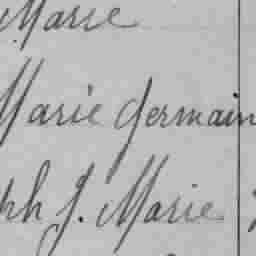 Marie
Marie Germain
ph J. Marie